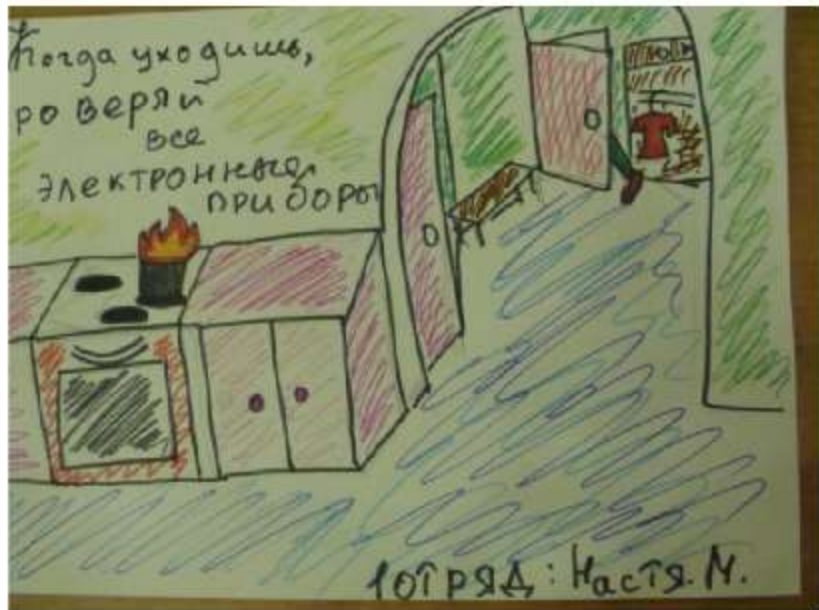 Когда уходишь,
роверяй
все
электронные
приборы
1 отряд: Настя. М.